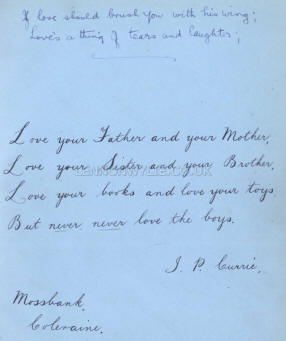 If love should brush you with his wing;
Love's a thing of tears and laughter;
Love your Father and your Mother,
Love your Sister and your Brother,
LENNONWYLIE.CO.UK
Love your books and love your toys
But never, never love the boys.
J. P. Currie,
Mossbank,
Coleraine.